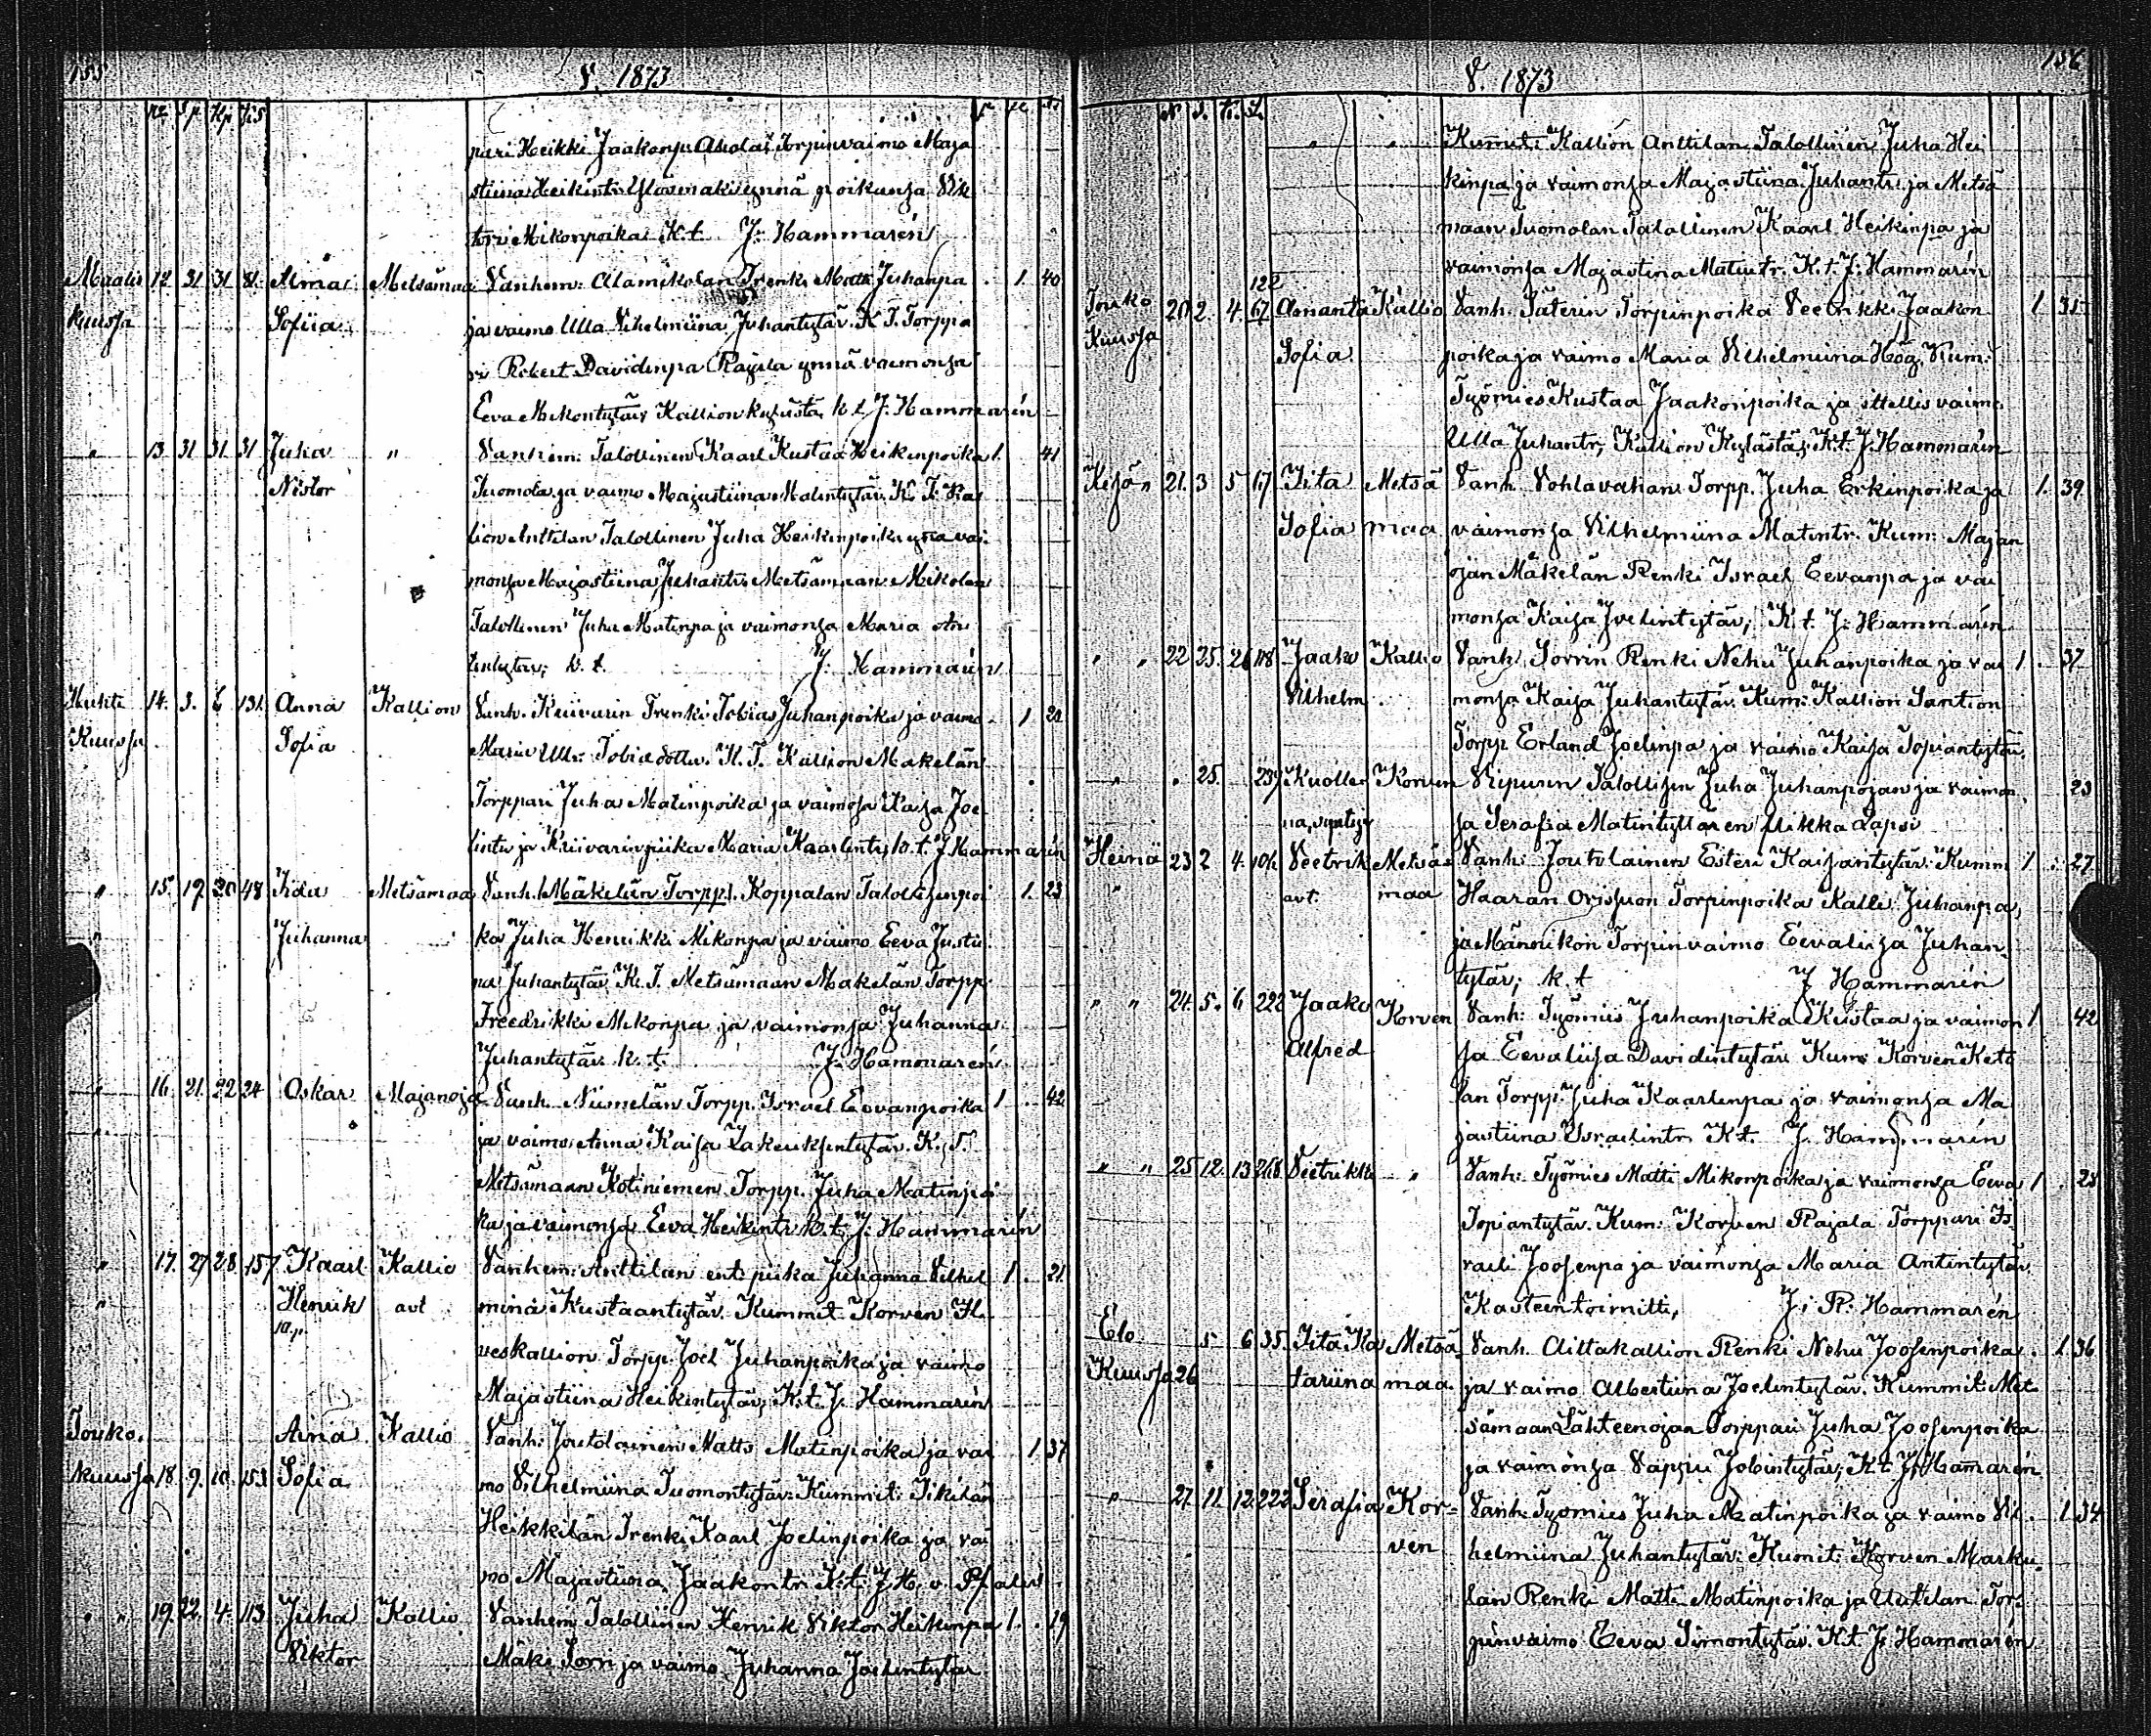 155
V. 1873
N: Sp Kp
pari Heikki Jaakonp. Ahola, Torpinvaimo Maja
stiina Heikintr. Ylösmäki ynnä poikansa Vik
tori Mikonpoika K.t. J: Hammarén
Maalis 12. 31 31 81. Alma Metsämaa Vanhem: Alamikolan Trenki Matti Juhanpa . 1. 40
kuussa Sofiia ja vaimo Ulla Vilhelmiina Juhantytär. K. T. Torppa
ri Robert Davidinpa Rajala ynnä vaimonsa
Eeva Mikontytär Kallion kylästä, k.t. J. Hammarén
" 13 31 31 31 Juha " Vanhem: Talollinen Kaarl Kustaa Heikinpoika 1. 41
Nestor Tuomola ja vaimo Majastiina Matintytär. K. T. Kal
lion Anttilan Talollinen Juha Heikinpoika ynnä vai
monsa Majastiina Juhantr. Metsämaan Mikolan
Talollinen Juha Matinpa ja vaimonsa Maria An
tintytär; k. t. J: Hammarén
Huhti 14. 3. 6 131. Anna Kallion Vanh. Kriivarin Trenki Tobias Juhanpoika ja vaimo . 1 28
Kuussa Sofia Maria Ulr. Tobiadotter. K. T. Kallion Mäkelän
Torppari Juha Matinpoika ja vaimosa Kaisa Joe
lintr ja Kriivarin piika Maria Kaarlintr, k.t. J Hammarén
" 15. 19. 20 48 Iida Metsämaa Vanh. (Mäkelän Torpp.) Koppalan Talollisenpoi 1. 23
" Juhanna ka Juha Henrikki Mikonpa ja vaimo Eeva Justii
na Juhantytär K. T. Metsämaan Mäkelän Torpp.
Freedrikki Mikonpa ja vaimonsa Juhanna
Juhantytär k. t. J. Hammarén
" 16. 21. 22 24 Oskar Majanoja Vanh. Niemelän Torpp. Israel Eevanpoika 1 . 42
ja vaimo Anna Kaisa Sakeuksentytär. K. T.
Metsämaan Kotiniemen Torpp. Juha Matinpoi
ka ja vaimonsa Eeva Heikintr k. t. J: Hammarén
" 17. 27 28 157 Kaarl Kallio Vanhem: Anttilan ent. piika Juhanna Vilhel 1 . 21.
" Henrik avt miina Kustaantytär. Kummit: Korven
veskallion Torpp. Joel Juhanpoika ja vaimo
Majastiina Heikintytär; K.t. J. Hammarén
Touko. Aina Kallio Vanh: Joutolainen Matts Matinpoika ja vai 1. 37
kuussa 18. 9. 10. 153 Sofia mo Vilhelmiina Tuomontytär: Kummit:
Heikkilän Trenki Kaarl Joelinpoika ja vai
mo Majastiina Jaakontr. K.t. J. H. v. Pfaler
" " 19. 22. 4. 113. Juha Kallio Vanhem: Talollinen Henrik Viktor Heikinpa 1. . 19
Viktor Mäki Sorri ja vaimo Juhanna Joelintytär
156
V. 1873
" " Kummit: Kallion Anttilan Talollinen Juha Hei
kinpa ja vaimonsa Majastiina Juhantr. ja Metsä
maan Tuomolan Talollinen Kaarl Heikinpa ja
vaimonsa Majastina Matintr. K. t. J: Hammarén
122
Touko 20 2. 4. 67 Amanta Kallio Vanh. Säterin Torpinpoika Veetrikki Jaakon 1. 35
Kuussa Sofia poika ja vaimo Maria Vilhelmiina Hög. Kum:
Työmies Kustaa Jaakonpoika ja ittellis vaimo
Ulla Juhantr, Kallion Kylästä; K.t. J. Hammarén
Kesä " 21. 3 5 67 Iita Metsä Vanh. Vohlavahan Torpp. Juha Erkinpoika ja 1. 39.
Sofia maa vaimonsa Vilhelmiina Matintr. Kum: Majan
ojan Mäkelän Renki Israel Eevanpa ja vai
monsa Kaisa Joelintytär; K. t. J: Hammarén
" " 22 25. 26 118 Jaako Kallio Vanh. Sorrin Renki Nehu Juhanpoika ja vai 1. 37
Vilhelm. monsa Kaisa Juhantytär. Kum: Kallion Santion
Torpp Erland Joelinpa ja vaimo Kaisa Topiantytär.
" " 25. 239 Kuolle Korven Ripurin Talollisen Juha Juhanpojan ja vaimon 23
na syntyy sa Serafia Matintyttären flikka Lapsi
Heinä 23 2 4. 104 Veetrik Metsä= Vanh: Joutolainen Esteri Kaisantytär. Kumm 1 . 27.
" avt. maa Haaran Torpinpoika Kalle Juhanpa,
ja Männikön Torpinvaimo Eevaliisa Juhan
tytär; k. t J Hammarén
" " 24. 5. 6 222 Jaako Korven Vanh: Työmies Juhanpoika Kustaa ja vaimon 1 42
Alfred sa Eevaliisa Davidintytär Kum: Korven Keto
lan Torpp. Juha Kaarlenpa ja vaimonsa Ma
jastiina Israelintr. K.t. J. Hammarén
" " 25 12. 13 268 Veetrikki " Vanh: Työmies Matti Mikonpoika ja vaimonsa Eeva 1 . 28
Topiantytär. Kum: Korven Rajala Torppari Is
raeli Joosenpa ja vaimonsa Maria Antintytär
Kasteen toimitti, J: R: Hammarén
Elo 5 6 35. Iita Ka Metsä Vanh. Aittakallion Renki Nehu Joosenpoika . 1. 36
Kuussa 26 tariina maa. ja vaimo Albertiina Joelintytär. Kummit: Met
sämaan Lähteenojan Torppari Juha Joosenpoika
ja vaimonsa Vappu Jobintytär; K.t. J. Hamarén
" 27. 11. 12. 222 Serafia Kor= Vanh: Työmies Juha Matinpoika ja vaimo Vil . 1 34
ven helmiina Juhantytär: Kumit: Korven Marku
lan Renki Matti Matinpoika ja Uutelan Tor=
pinvaimo Eeva Simontytär. K.t. J. Hammarén